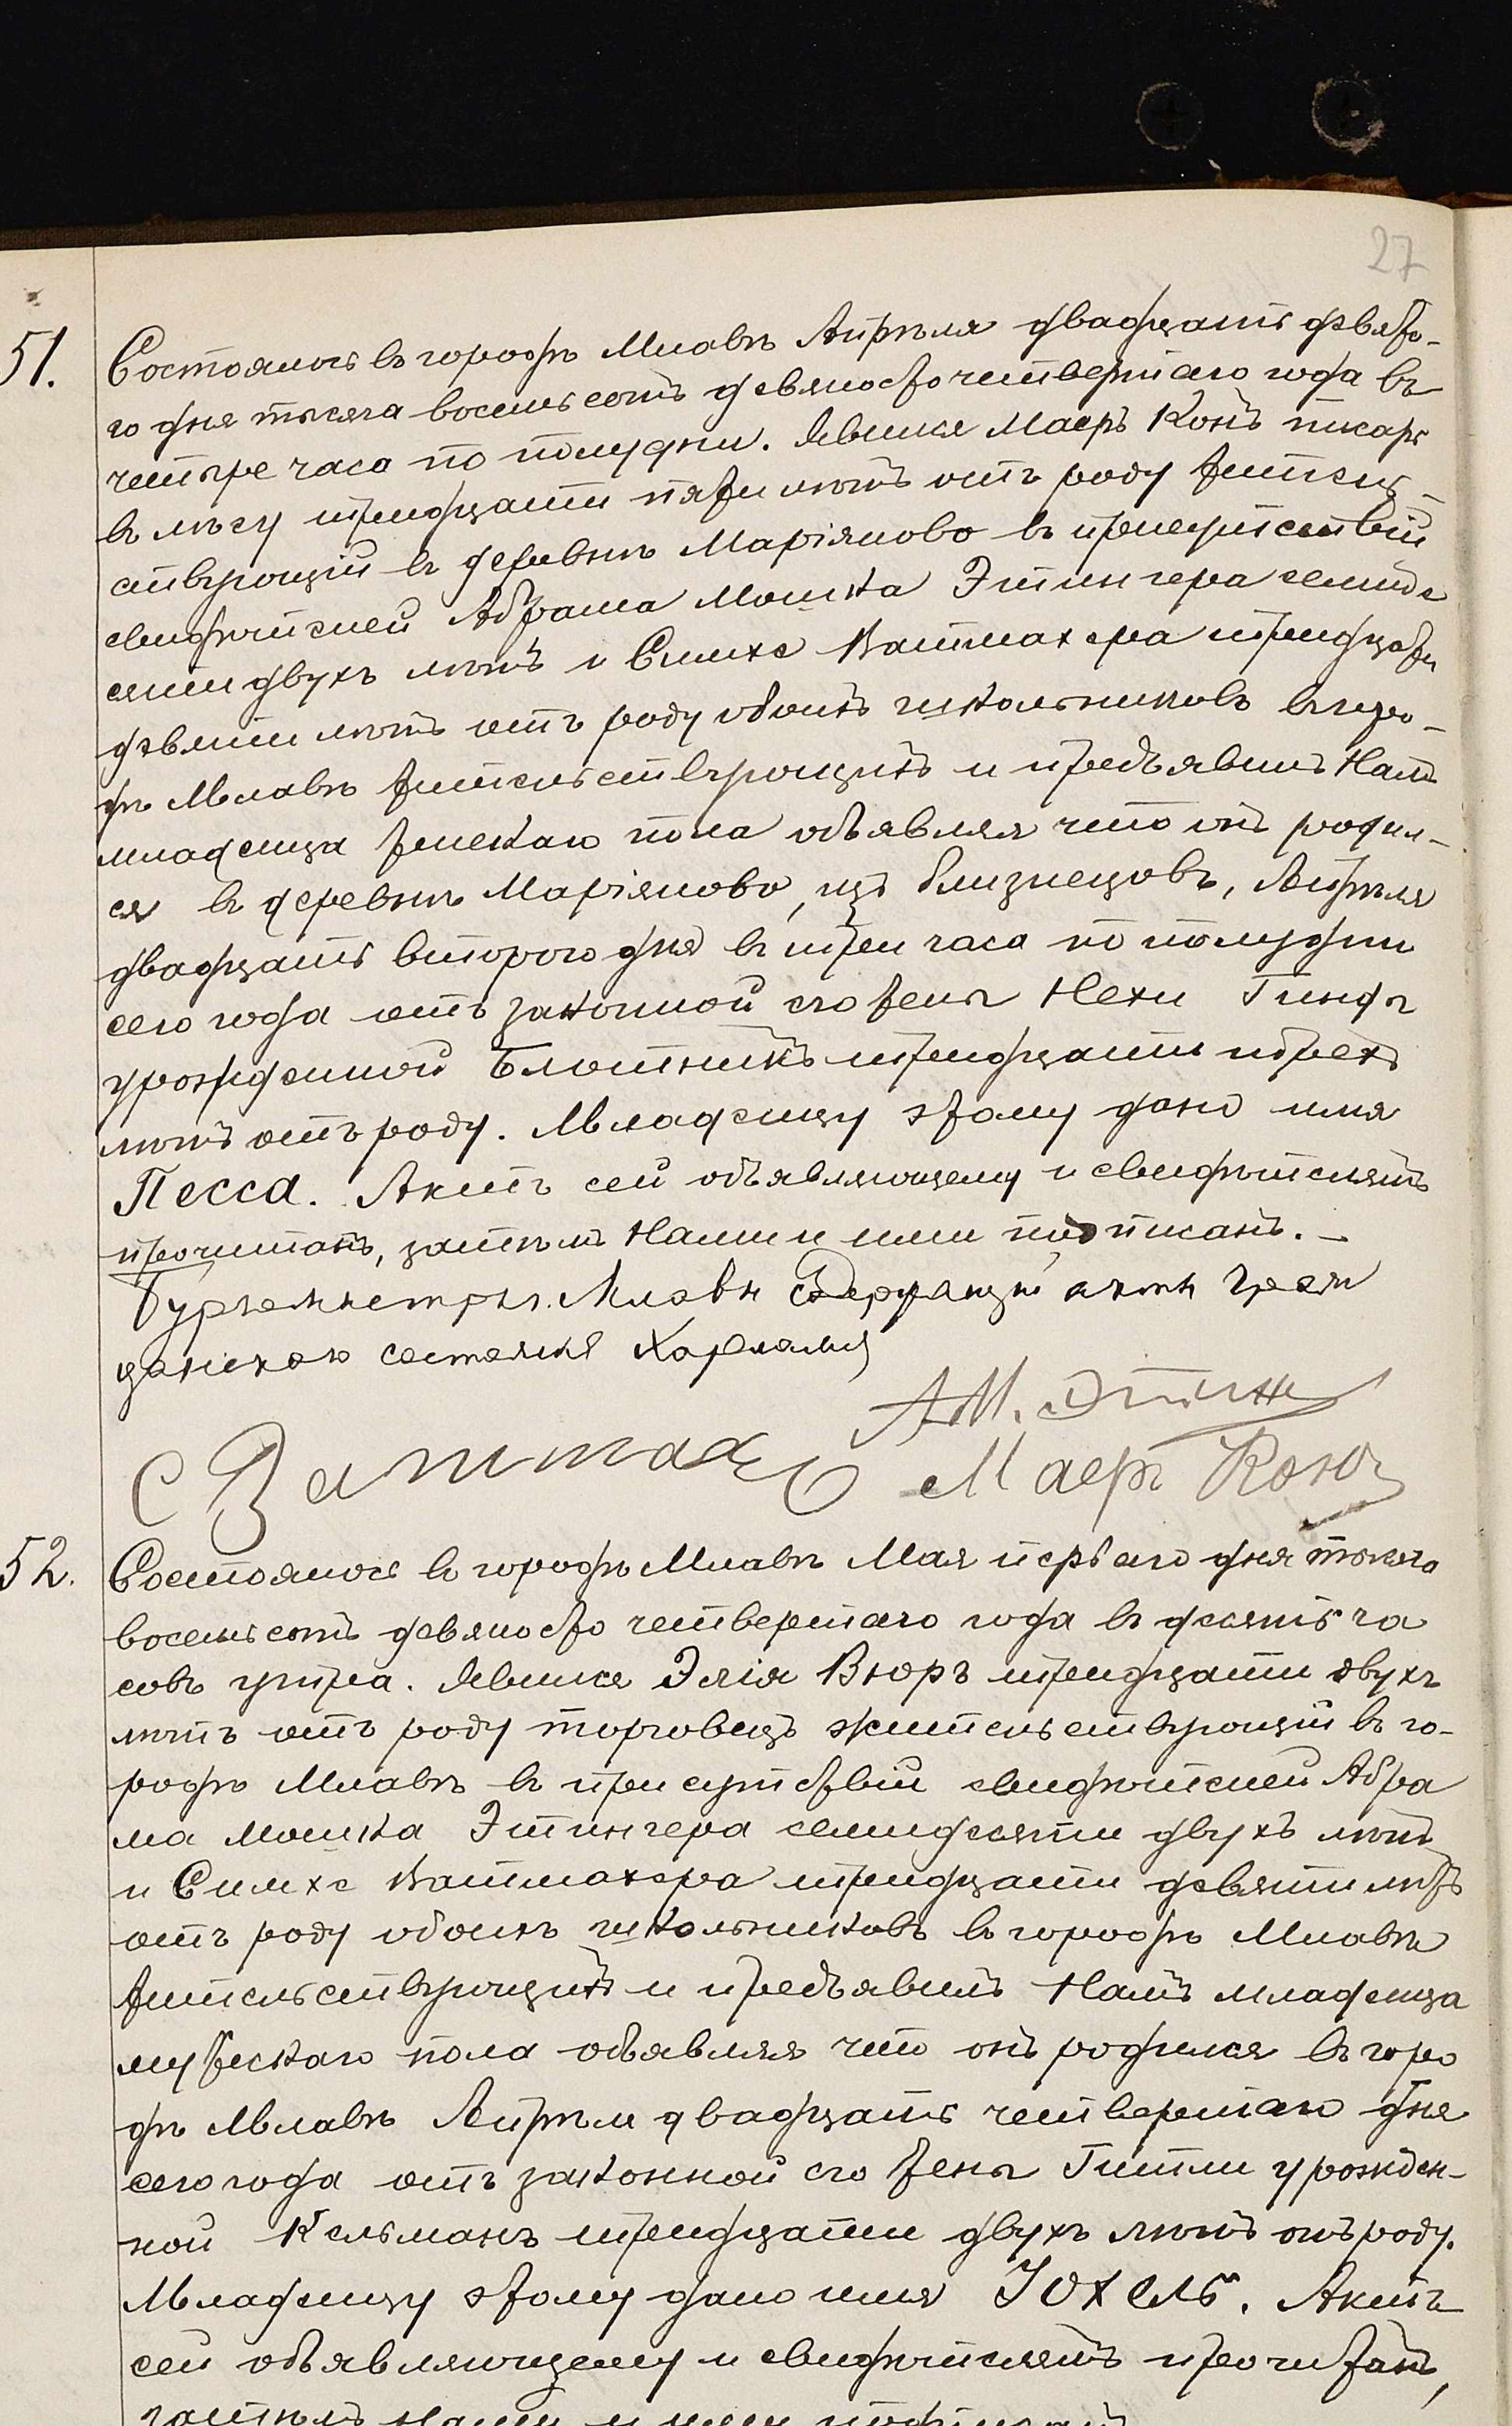 27
51.
Состоялось въ городѣ Млавѣ Апрѣля двадцать девято-
го дня тысяча восемьсотъ девяносто четвертаго года въ
четыре часа по полудни. Явился Маеръ Конъ писарь
въ лѣсу тридцати пяти лѣтъ отъ роду житель-
ствующій въ деревнѣ Маріяново въ присутствіи
свидѣтелей Абрама Мошка Этингера семиде
сяти двухъ лѣтъ и Симхе Ватмахера тридцати
девяти лѣтъ отъ роду обоихъ школьниковъ въ горо-
дѣ Млавѣ жительствующихъ и предъявилъ Намъ
младенца женскаго пола объявляя что онъ родил-
ся въ деревнѣ Маріяново, изъ близнецовъ, Апрѣля
двадцать второго дня въ три часа по полудни
сего года отъ законной его жены Нехи Гинды
урожденной Блотникъ тридцати трехъ
лѣтъ отъ роду. Младенцу этому дано имя
Песса. Актъ сей объявляющему и свидѣтелямъ
прочитанъ, затѣмъ Нами и ими подписанъ. –
Бургомистръ г. Млавы Содержащій акты граж
данскаго состоянія
А М. Этинг
С Ватмах
Маеръ Конъ
52.
Состоялось въ городѣ Млавѣ Мая перваго дня тысяча
восемьсотъ девяносто четвертаго года въ десять ча
совъ утра. Явился Элія Вюръ тридцати двухъ
лѣтъ отъ роду торговецъ жительствующій въ го-
родѣ Млавѣ въ присутствіи свидѣтелей Абра
ма Мошка Этингера семидесяти двухъ лѣтъ
и Симхе Ватмахера тридцати девяти лѣтъ
отъ роду обоихъ школьниковъ въ городѣ Млавѣ
жительствующихъ и предъявилъ Намъ младенца
мужескаго пола объявляя что онъ родился въ горо
дѣ Млавѣ Апрѣля двадцать четвертаго дня
сего года отъ законной его жены Гитли урожден-
ной Кельманъ тридцати двухъ лѣтъ отъ роду.
Младенцу этому дано имя Юхель. Актъ
сей объявляющему и свидѣтелямъ прочитанъ,
затѣмъ Нами и ими подписанъ